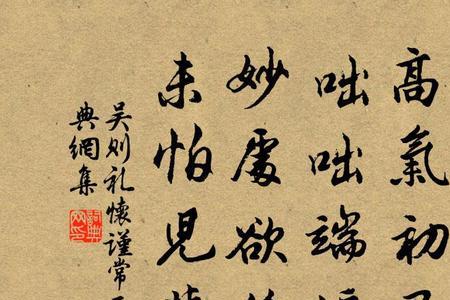 高氣初
咄咄端
妙處欲
未怕兒
吳則礼懷謹常
典網集